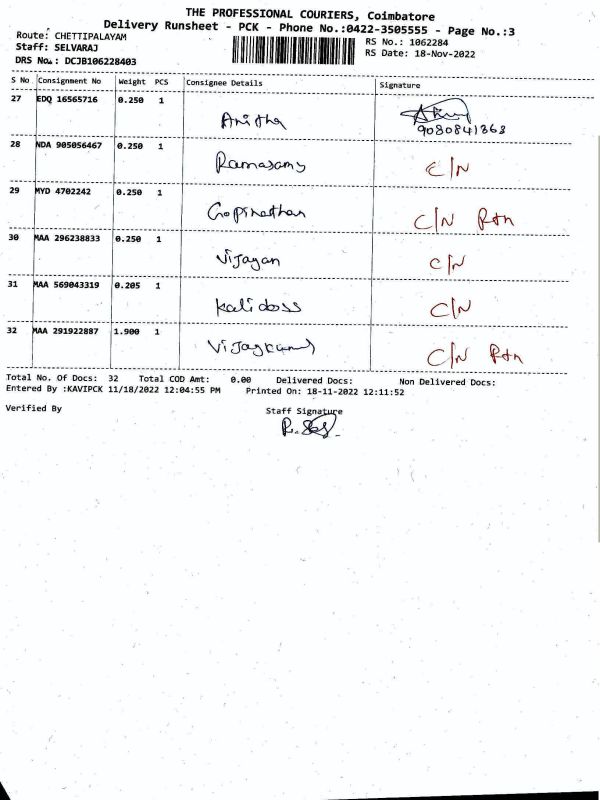 THE PROFESSIONAL COURIERS, Coimbatore
Delivery Runsheet - PCK - Phone No.:0422-3505555 - Page No.:3
Route: CHETTIPALAYAM
Staff: SELVARAJ
DRS No.: DCJB106228403
RS No.: 1062284
RS Date: 18-Nov-2022
S No Consignment No Weight PCS Consignee Details Signature
27 EDQ 16565716 0.250 1 Anitha
9080841363
28 NDA 905056467 0.250 1 Ramasamy C/N
29 MYD 4702242 0.250 1 Gopinathan C/N Rtn
30 MAA 296238833 0.250 1 Vijayan C/N
31 MAA 569043319 0.205 1 Kalidoss C/N
32 MAA 291922887 1.900 1 C/N Rtn
Total No. Of Docs: 32 Total COD Amt: 0.00 Delivered Docs: Non Delivered Docs:
Entered By :KAVIPCK 11/18/2022 12:04:55 PM Printed On: 18-11-2022 12:11:52
Verified By Staff Signature